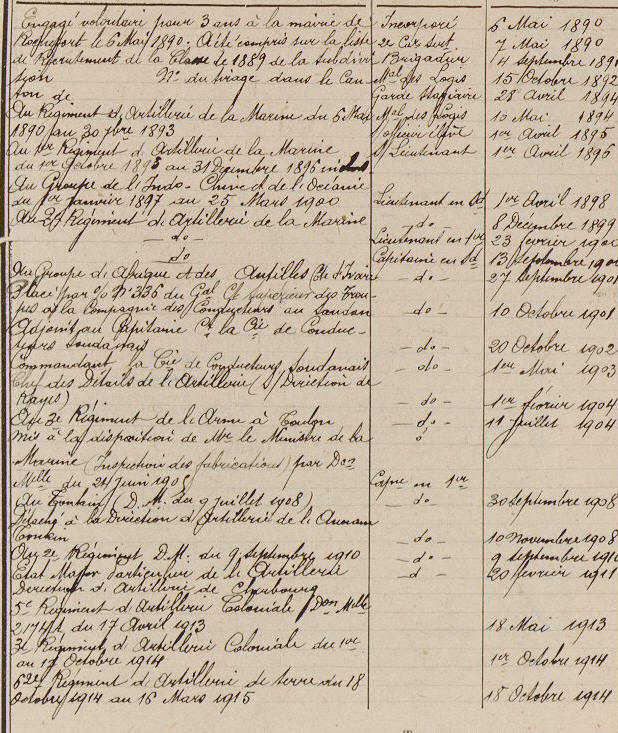 Engagé volontaire pour 3 ans à la mairie de Incorporé 6 Mai 1890
Rochefort le 6 Mai 1890. A été compris sur la liste 2e Cer Serv 7 Mai 1890
de recrutement de la Classe de 1889 de la subdivi Brigadier 4 septembre 1891
sion No du tirage dans le Can Mal des Logis 15 Octobre 1892
ton de Garde Stagiaire 28 Avril 1894
Au Régiment d'Artillerie de la Marine du 6 Mai Mal des Logis 10 Mai 1894
1890 au 30 9bre 1893 élève 1er Avril 1895
Au 1er Régiment d'Artillerie de la Marine S/Lieutenant 1er Avril 1896
du 1er Octobre 1895 au 31 Décembre 1896
Au Groupe de l'Indo-Chine et de l'Océanie
du 1er janvier 1897 au 25 Mars 1900 Lieutenant en 2d 1er Avril 1898
Au 2e Régiment d'Artillerie de la Marine - do - 8 Décembre 1899
- do - Lieutenant en 1er 23 février 1900
- do - Capitaine en 2d 13 septembre
Au Groupe d'Afrique et des Antilles (Cte d'Ivoire - do - 27 septembre 1901
Placé par o/o No 336 du Gal Ct supérieur des Trou-
pes à la Compagnie des Conducteurs au Soudan - do - 10 Octobre 1901
Adjoint au Capitaine Ct la Cie de Conduc-
teurs soudanais - do - 20 Octobre 1902
Commandant la Cie de Conducteurs soudanais - do - 1er Mai 1903
Chef des Détails de l'Artillerie (S/Direction de
Kayes) - do - 1er février 1904
Au 3e Régiment de l'Arme à Toulon - do - 11 juillet 1904
Mis à la disposition de Mr le Ministre de la
Marine (Inspection des fabrications) par Don
Melle du 24 juin 1905 Capne en 1er
Au Tonkin (D.M. du 9 juillet 1908) - do - 30 septembre 1908
Détaché à la Direction d'Artillerie de l'Annam
Tonkin - do - 10 novembre 1908
Au 2e Régiment D.M. du 9 septembre 1910 - do - 9 septembre 1910
Etat Major Particulier de l'Artillerie - d - 20 février 1911
Direction d'Artillerie de Cherbourg
5e Régiment d'Artillerie Coloniale Don Melle
2174/1 du 17 Avril 1913 18 Mai 1913
3e Régiment d'Artillerie Coloniale du 1er
au 17 Octobre 1914 1er Octobre 1914
62e Régiment d'Artillerie de terre du 18
Octobre 1914 au 16 Mars 1915 18 Octobre 1914